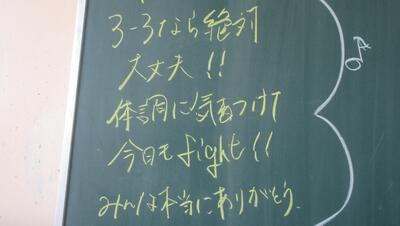 3-3なら絶対
大丈夫!!
体調に気をつけて
今日も fight!!
みんな本当にありがとう.